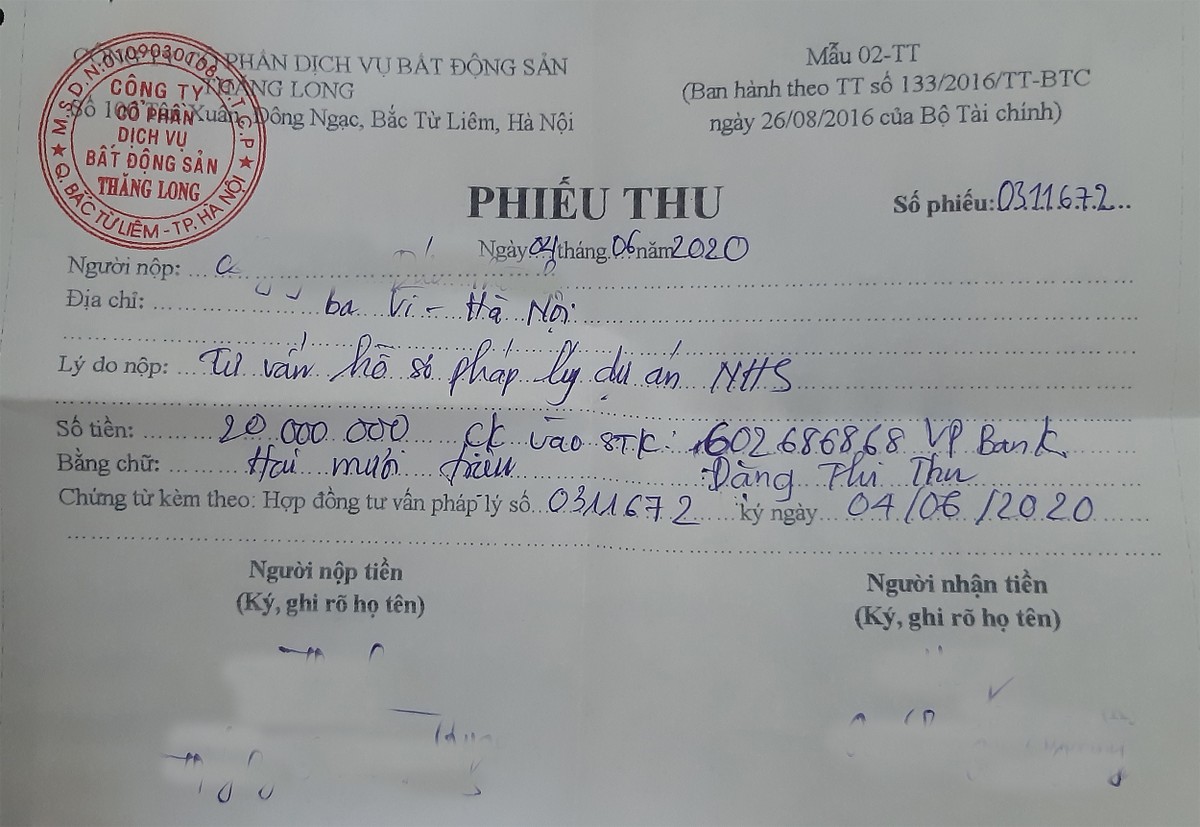 PHẦN DỊCH VỤ BẤT ĐỘNG SẢN
THĂNG LONG
Số 100 Tân Xuân, Đông Ngạc, Bắc Từ Liêm, Hà Nội
M.S.D.N:0109030108.C.T.C.P
CÔNG TY
CỔ PHẦN
DỊCH VỤ
BẤT ĐỘNG SẢN
THĂNG LONG
Q. BẮC TỪ LIÊM - TP. HÀ NỘI
Mẫu 02-TT
(Ban hành theo TT số 133/2016/TT-BTC
ngày 26/08/2016 của Bộ Tài chính)
PHIẾU THU
Số phiếu:0311672
Ngày 04 tháng 06 năm 2020
Người nộp:
Địa chỉ: ba Vì - Hà Nội
Lý do nộp: Tư vấn hồ sơ pháp lý dự án NHS
Số tiền: 20 000 000 CK vào STK: 602686868 VP Bank
Bằng chữ: Hai mươi triệu Đặng Thị Thu
Chứng từ kèm theo: Hợp đồng tư vấn pháp lý số 0311672 ký ngày 04/06/2020
Người nộp tiền
(Ký, ghi rõ họ tên)
Người nhận tiền
(Ký, ghi rõ họ tên)